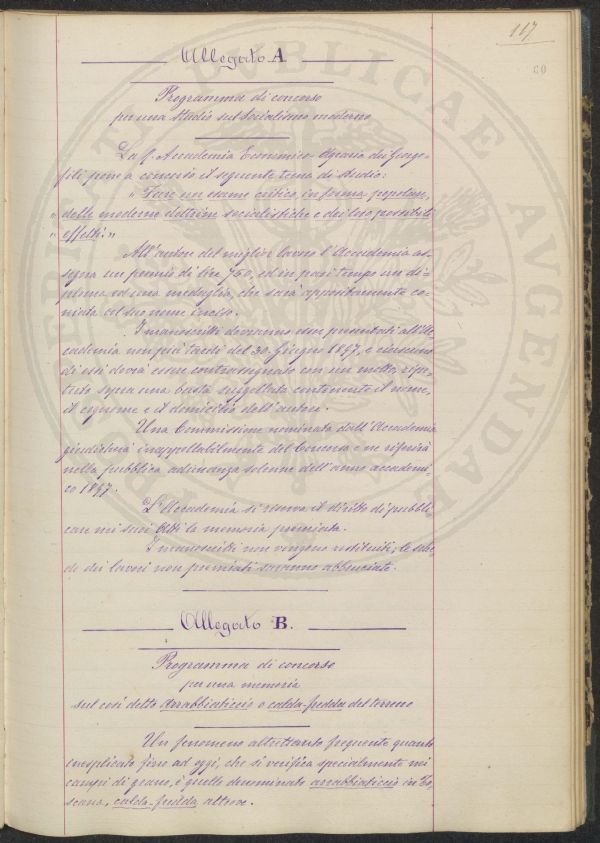 117
60
Allegato A
Programma di concorso
per una studio sul socialismo moderno
La R. Accademia Economico-Agraria dei Georgo-
fili pone a concorso il seguente tema di studio:
" Fare un esame critico, in forma popolare,
" delle moderne dottrine socialistiche e dei loro possibili
" effetti."
All'autore del miglior lavoro l'Accademia as-
segna un premio di lire 750, ed in pari tempo un di-
ploma ed una medaglia, che sarà appositamente co-
niata col suo nome inciso.
I manoscritti dovranno esser presentati all'Ac-
cademia non più tardi del 30 Giugno 1897, e ciascuno
di essi dovrà essere contrassegnato con un motto, ripe-
tuto sopra una busta suggellata contenente il nome,
il cognome e il domicilio dell'autore.
Una Commissione nominata dall'Accademia
giudicherà inappellabilmente del Concorso e ne riferirà
nella pubblica adunanza solenne dell'anno accademi-
co 1897.
L'Accademia si riserva il diritto di pubbli-
care nei suoi Atti la memoria premiata.
I manoscritti non vengono restituiti; le sche-
de dei lavori non premiati saranno abbruciate.
Allegato B.
Programma di concorso
per una memoria
sul così detto arrabbiaticcio o calda-fredda del terreno
Un fenomeno altrettanto frequente quanto
complicato fino ad oggi, che si verifica specialmente nei
campi di grano, è quello denominato arrabbiaticcio in To-
scana, calda-fredda altrove.
PUBLICAE
AUGENDAE
PROSPERITATI